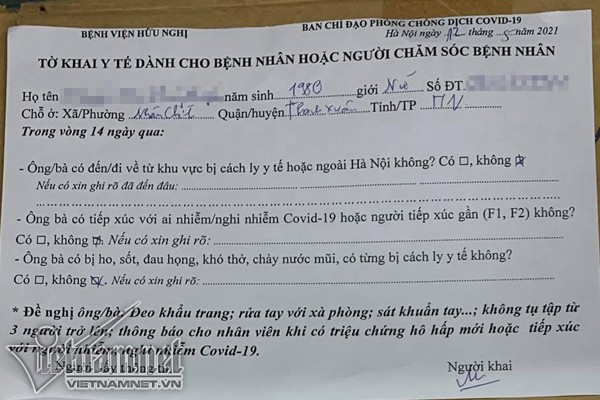 BỆNH VIỆN HỮU NGHỊ
BAN CHỈ ĐẠO PHÒNG CHỐNG DỊCH COVID-19
Hà Nội ngày 12 tháng 5 năm 2021
TỜ KHAI Y TẾ DÀNH CHO BỆNH NHÂN HOẶC NGƯỜI CHĂM SÓC BỆNH NHÂN
Họ tên năm sinh 1980 giới Nữ Số ĐT.
Chỗ ở: Xã/Phường Nhân Chính Quận/huyện Thanh Xuân Tỉnh/TP HN
Trong vòng 14 ngày qua:
- Ông/bà có đến/đi về từ khu vực bị cách ly y tế hoặc ngoài Hà Nội không? Có □, không ☒
Nếu có xin ghi rõ đã đến đâu:
- Ông bà có tiếp xúc với ai nhiễm/nghi nhiễm Covid-19 hoặc người tiếp xúc gần (F1, F2) không?
Có □, không ☒ Nếu có xin ghi rõ:
- Ông bà có bị ho, sốt, đau họng, khó thở, chảy nước mũi, có từng bị cách ly y tế không?
Có □, không ☒. Nếu có xin ghi rõ:
* Đề nghị ông/bà: Đeo khẩu trang; rửa tay với xà phòng; sát khuẩn tay...; không tụ tập từ
3 người trở lên; thông báo cho nhân viên khi có triệu chứng hô hấp mới hoặc tiếp xúc
với người nhiễm, nghi nhiễm Covid-19.
Người khai
vietnamnet
VIETNAMNET.VN